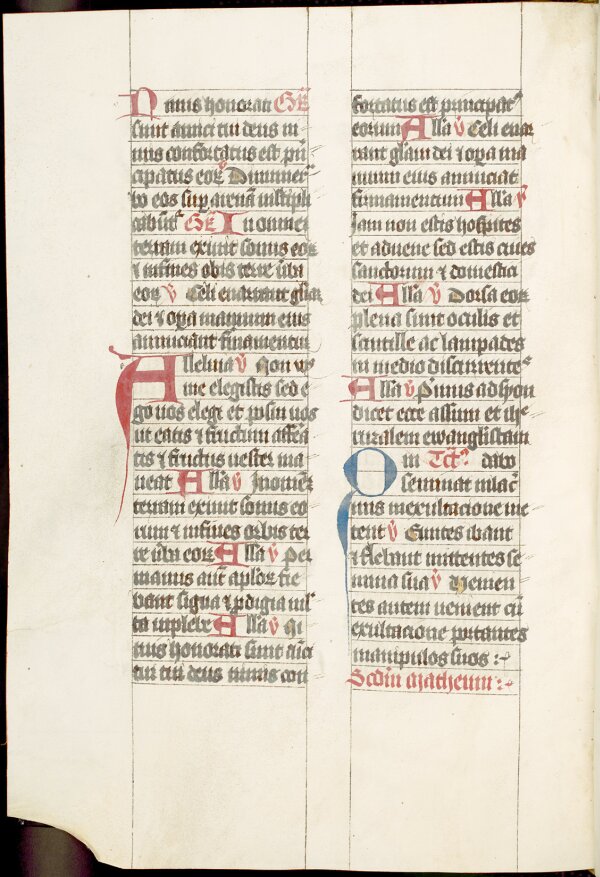 Nimis honorati GR
sunt amici tui deus ni
mis confortatus est pri
cipatus eor Dinumer
bo eos sup arenā
GR In omnem
terram exiuit sonus eor
⁊ in fines orbis terre ūba
eor ℣ Celi enarrant gliaꝫ
dei ⁊ opa manuum eius
annuciant firmamentū
Alleluia ℣ Non vos
me elegistis sed e
go uos elegi et posui uos
ut eatis ⁊ fructum affera
tis ⁊ fructus uester ma
neat Alla ℣ In omnē
terram exiuit sonus eo
rum ⁊ in fines orbis ter
re ūba eor Alla ℣ Per
manus aut aplor fie
bant signa ⁊ pdigia mul
ta in plebe Alla ℣ Ni
mis honorati sunt amici
tui deus nimis con
fortatus est principat
eorum Alla ℣ Celi enar
rant gliam dei ⁊ opa ma
nuum eius annuciat
firmamentum Alla ℣
Iam non estis hospites
et aduene sed estis ciues
sanctorum ⁊ domestici
dei Alla ℣ Dorsa eor
plena sunt oculis et
scintille ac lampades
in medio discurrentes
Alla ℣ Primus ad syon
dicet ecce assum et ihe
rusalem ewangelistam
Qui seminant in lacrimis in exultacione me
tent ℣ Euntes ibant
⁊ flebant mittentes se
mina sua ℣ Venien
tes autem uenient cū
exultacione portantes
manipulos suos :~
Scdm Matheum :~